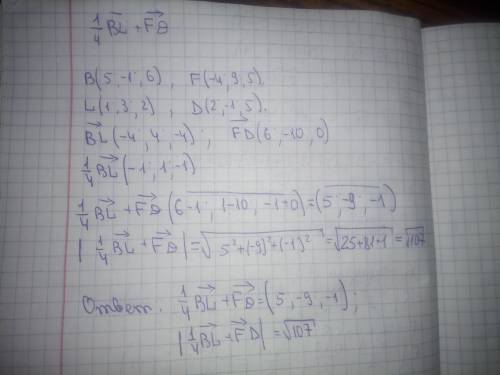 1/4 BL + FD
B(5,-1,6), F(-4,9,5).
L(1,3,2), D(2,-1,5).
BL(-4; 4; -4); FD(6, -10, 0)
1/4 BL(-1; 1; -1)
1/4 BL + FD (6-1; 1-10, -1+0) = (5; -9; -1)
|1/4 BL + FD| = √5²+(-9)²+(-1)² = √25+81+1 = √107
Ответ. 1/4 BL + FD = (5, -9, -1);
|1/4 BL + FD| = √107